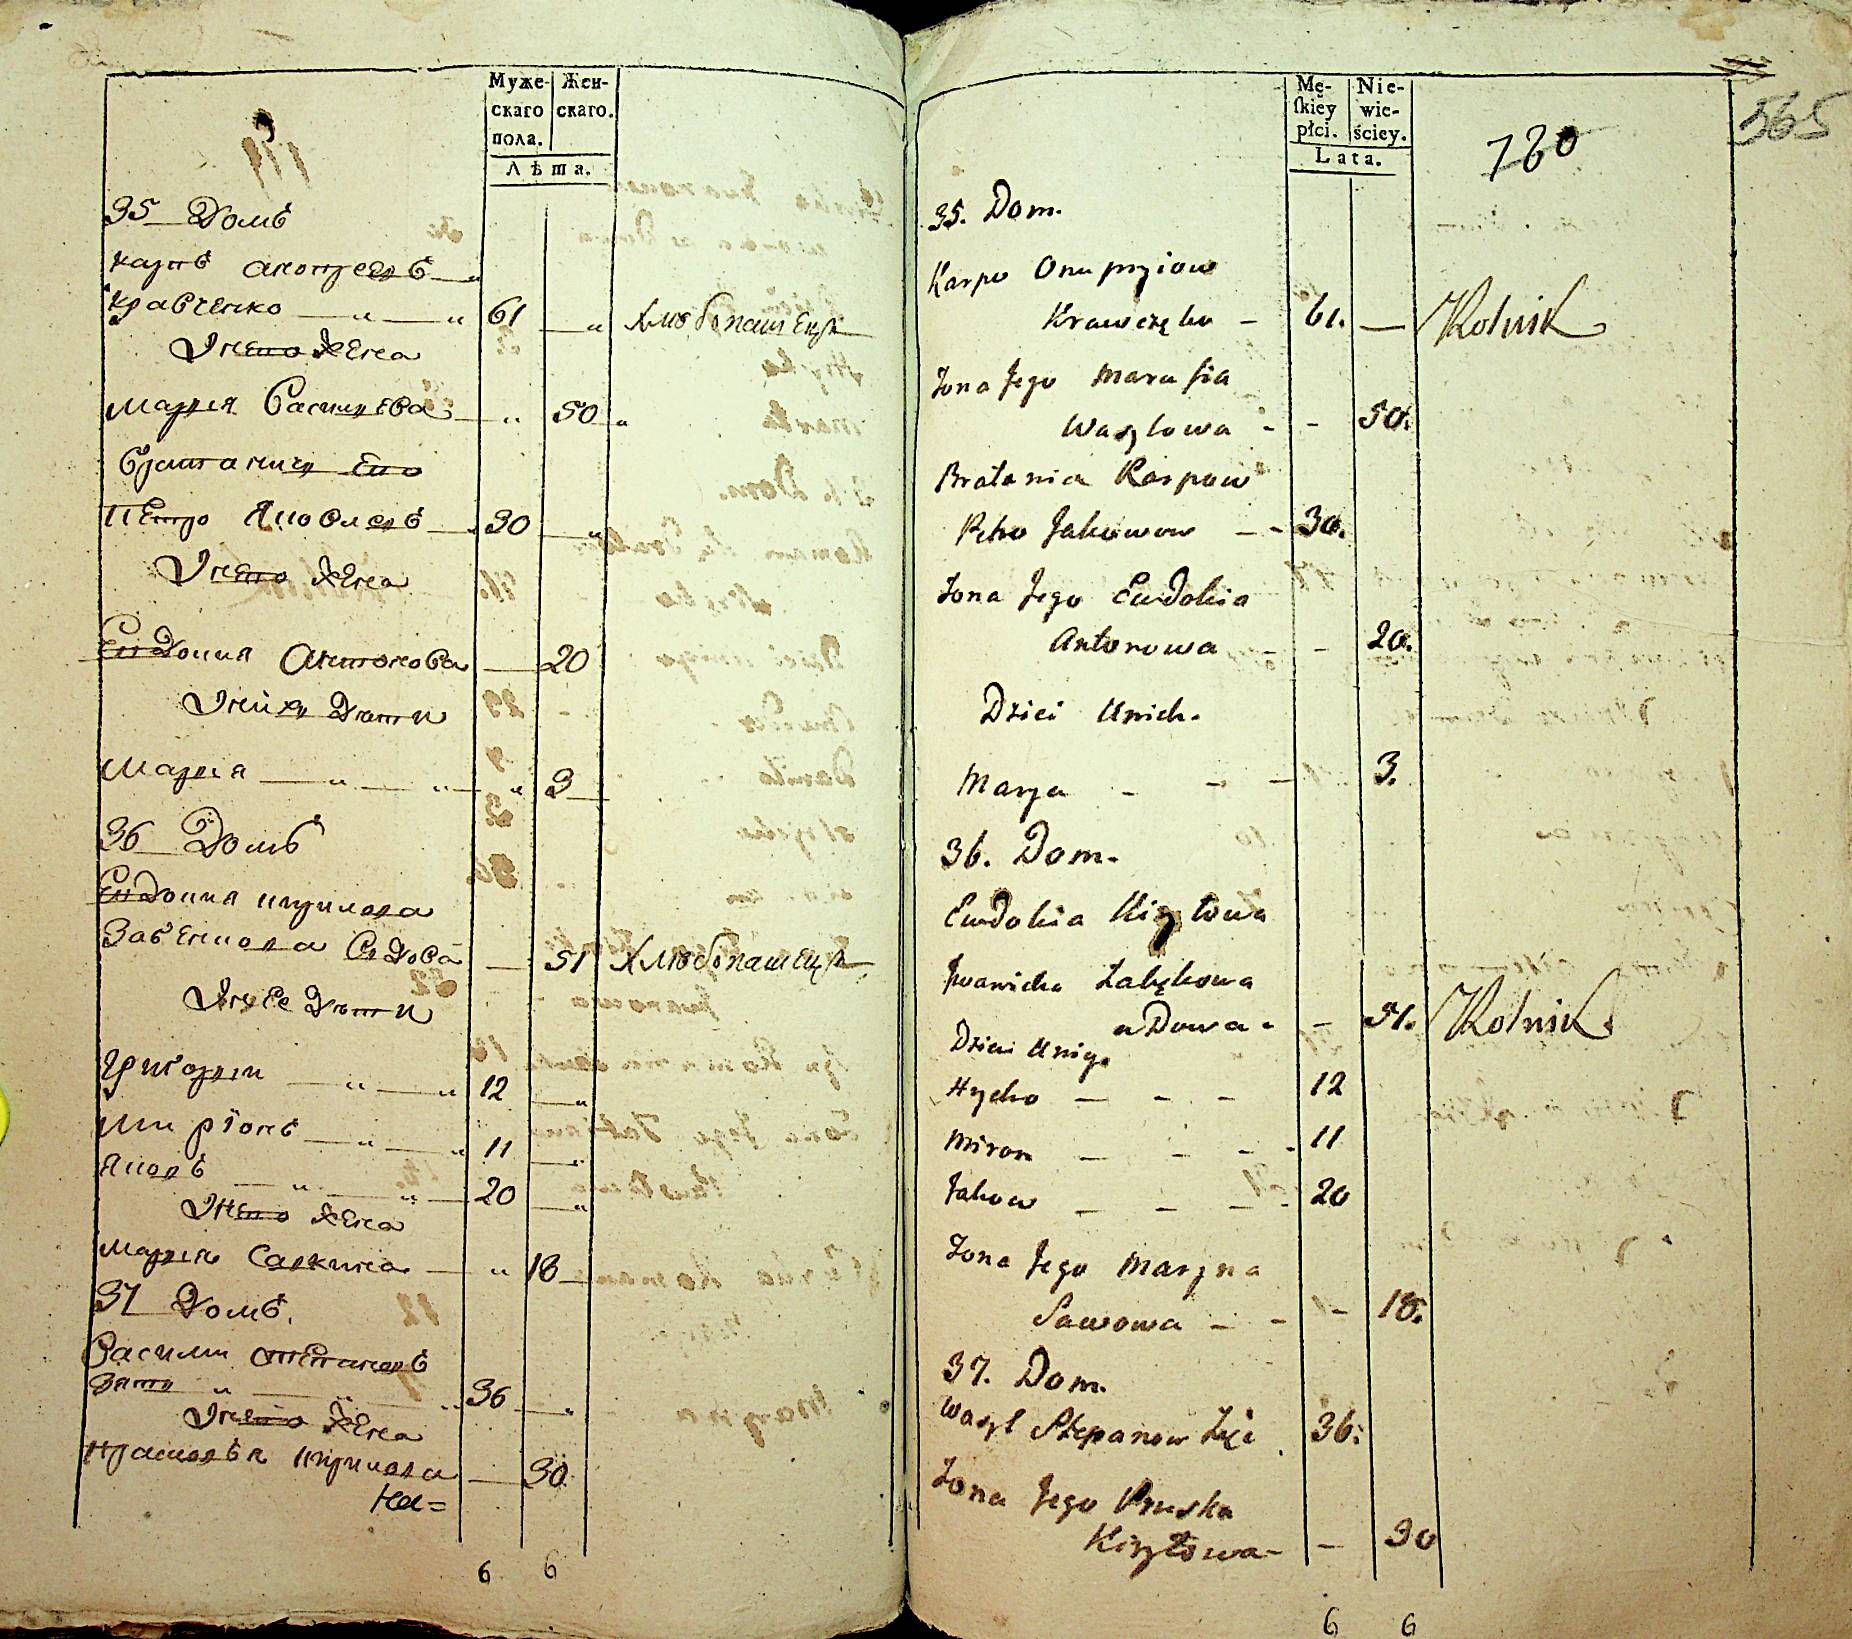 Муже-
скаго
пола.
Жен-
скаго.
Лѣта.
35 Домъ
Кравченко 61 Хлѣбопашецъ
Онего Жена
Мария Василева 50
Петро Яковлевъ 30
Онего Жена
Евдокия Антонова 20
Онихъ Дѣти
Мария 3
36 Домъ
Евдокия Кирилова
Вдова 51 Хлѣбопашецъ
Онее Дѣти
Григорий 12
Миріонъ 11
Яковъ 20
Онего Жена
Мария Савина 18
37 Домъ.
Васили Степановъ
Зять 36
Онего Жена
Кирилова 30
На=
6 6
Mę-
skiéy
płci.
Nie-
wie-
ściey.
Lata.
180
365
35. Dom.
Karpo Onupryiow
Krawczęko - 61. — Rolnik
Zona Jego Marusia
Wasylowa - - 50.
Bratania Karpow
Petro Jakowow — - 30.
Zona Jego Ewdokia
Antonowa - - 20.
Dzieci Unich.
Marya - - - 3.
36. Dom.
Ewdokia Kiryłowa
Iwanicha
wDowa - - 51. Rolnik
Dzieci Uniy.
Hrycko — - - 12
Miron — - - - 11
Jakow — - — - 20
Zona Jego Maryna
Sawowa - - - 18.
37. Dom.
Wasyl Stepanow Zięć 36.
Zona Jego Pruska
Kiryłowa - - 30
6 6